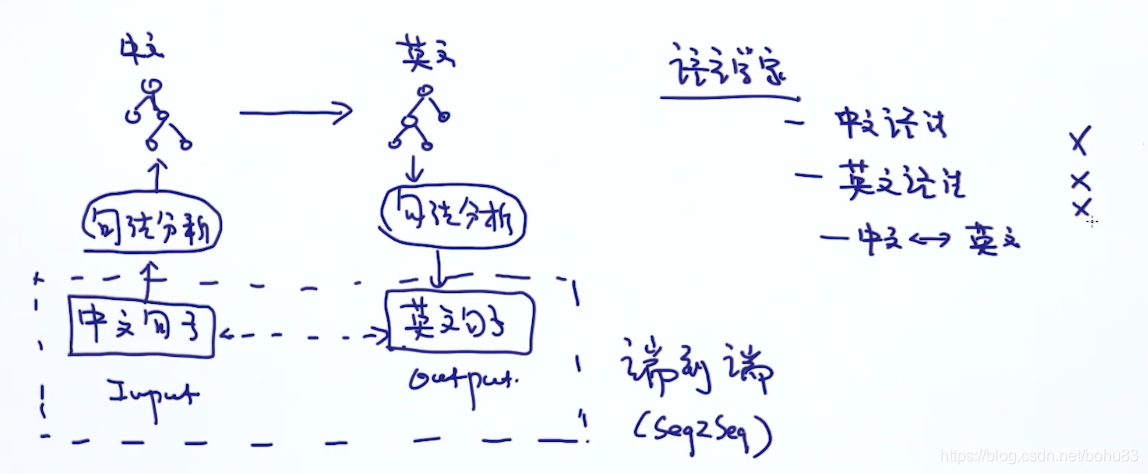 中文
英文
语言学家
- 中文语法 ×
- 英文语法 ×
- 中文 ↔ 英文 ×
句法分析
句法分析
中文句子
英文句子
Input
Output.
端到端
(Seq2Seq)
https://blog.csdn.net/bohu83